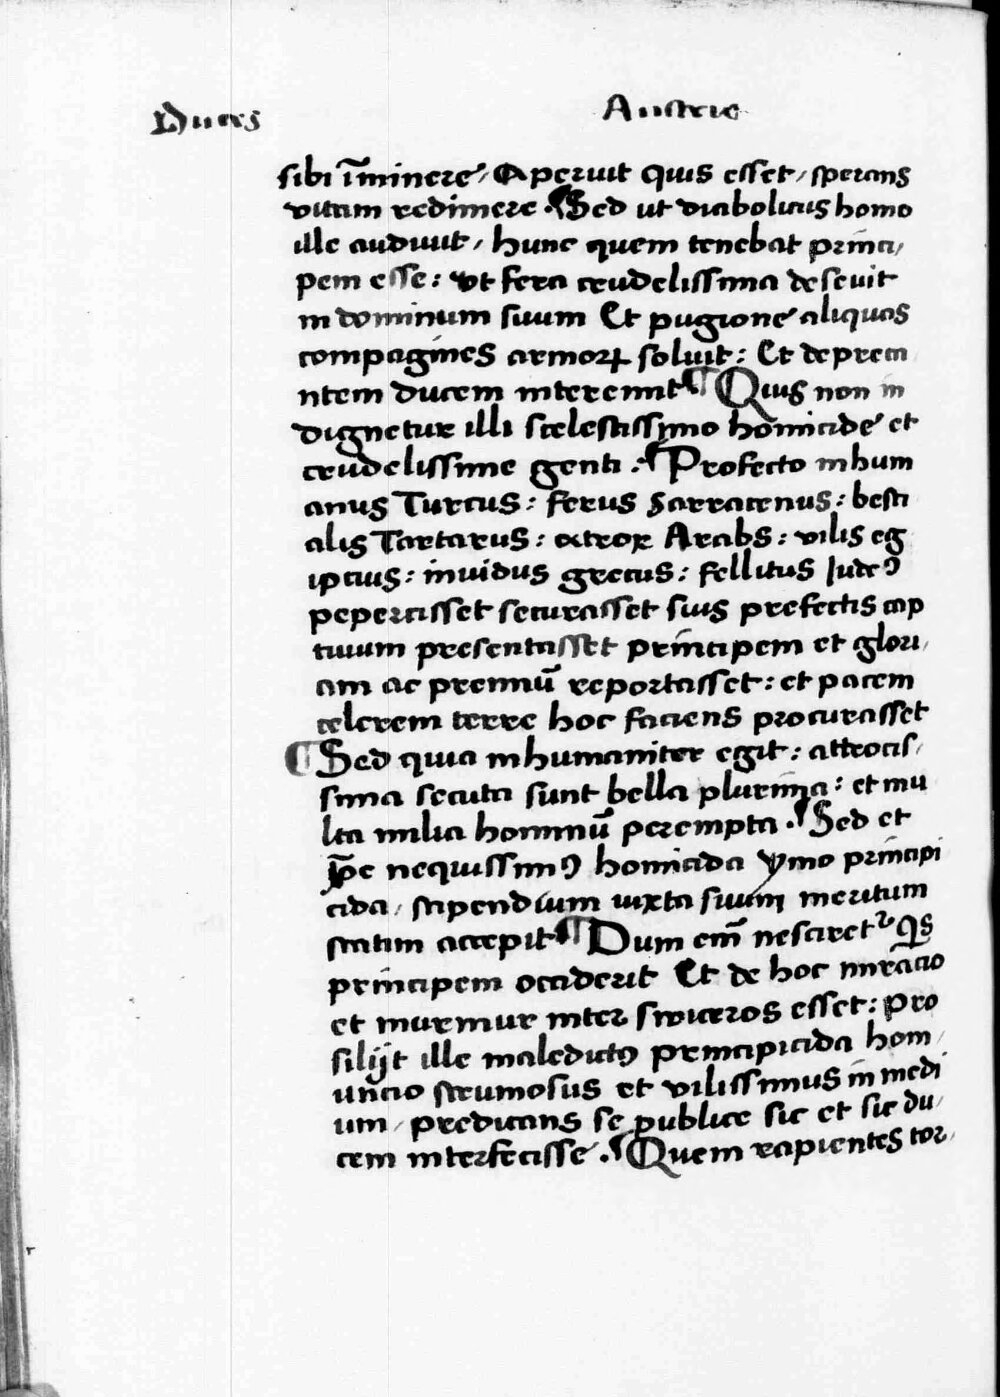 Duces Austrie
sibi im̄minere / Aperuit quis esset / sperans
vitam redimere . ¶ Sed ut diabolicus homo
ille audiuit / hunc quem tenebat princi/
pem esse : ut fera crudelissima deseuit
in dominum suum Et pugione aliquas
compagines armoꝝ soluit : Et depreca
ntem ducem interemit ¶ Quis non in
dignetur illi scelestissimo homicide et
crudelissime genti . ¶ Profecto inhum
anus Turcus : ferus Sarracenus : besti
alis Tartarus : atrox Arabs : vilis eg
iptius : inuidus grecus : fellitus Iudeꝰ
pepercisset securasset suis prefectis cap
tiuum presentasset principem et glori/
am ac premiū reportasset : et pacem
celerem terre hoc faciens procurasset
¶ Sed quia inhumaniter egit : attrocis/
sima secuta sunt bella plurima : et mu
lta milia hominū perempta . ¶ Sed et
ip̄e nequissimꝰ homicida ymo principi
cida / stipendium iuxta suum meritum
statim accepit ¶ Dum em̄ nesciretr qs
principem occiderit Et de hoc mirācio
et murmur inter swiceros esset : pro
silijt ille maledictꝰ principicida hom/
uncio strumosus et vilissimus in medi
um / predicans se publice sic et sic du/
cem interfecisse . ¶ Quem rapientes tor/